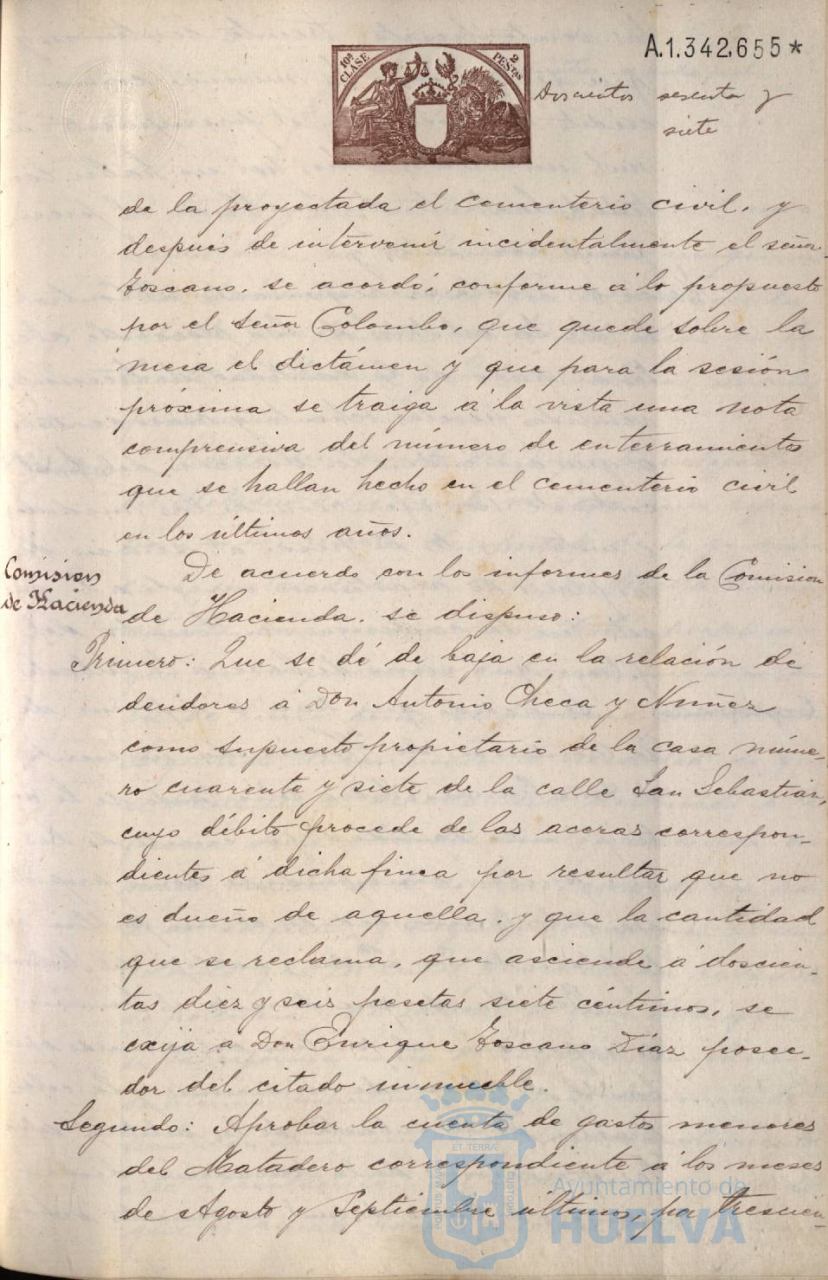 A.1.342.655*
10ª CLASE 2 PESTAS
Doscientos sesenta y
siete
de la proyectada el cementerio civil, y
después de intervenir incidentalmente el señor
Toscano, se acordó, conforme á lo propuesto
por el señor Colombo, que quede sobre la
mesa el dictámen y que para la sesión
próxima se traiga á la vista una nota
comprensiva del número de enterramientos
que se hallan hecho en el cementerio civil
en los últimos años.
Comision
de Hacienda
De acuerdo con los informes de la Comision
de Hacienda, se dispuso:
Primero: Que se dé de baja en la relación de
deudores á Don Antonio Checa y Nuñez
como supuesto propietario de la casa núme-
ro cuarenta y siete de la calle San Sebastián,
cuyo débito procede de las aceras correspon-
dientes á dicha finca por resultar que no
es dueño de aquella, y que la cantidad
que se reclama, que asciende á doscien-
tas diez y seis pesetas siete céntimos, se
exija a Don Enrique Toscano Díaz posee-
dor del citado inmueble.
Segundo: Aprobar la cuenta de gastos menores
del Matadero correspondiente á los meses
de Agosto y Septiembre últimos, por trescien-
Ayuntamiento de
HUELVA